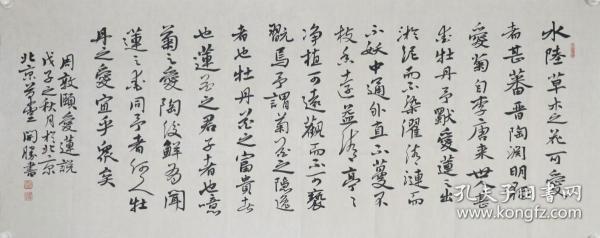 水陸草木之花可愛
者甚蕃晋陶淵明獨
愛菊自李唐来世人甚
愛牡丹予獨愛蓮之出
淤泥而不染濯清漣而
不妖中通外直不蔓不
枝香遠益清亭亭
净植可遠觀而不可褻
翫焉予謂菊花之隱逸
者也牡丹花之富貴者
也蓮花之君子者也噫
菊之愛陶後鮮有聞
蓮之愛同予者何人牡
丹之愛宜乎衆矣
周敦頤愛蓮説
戊子之秋月於北京
北京
書
孔夫子旧书网
www.kongfz.com